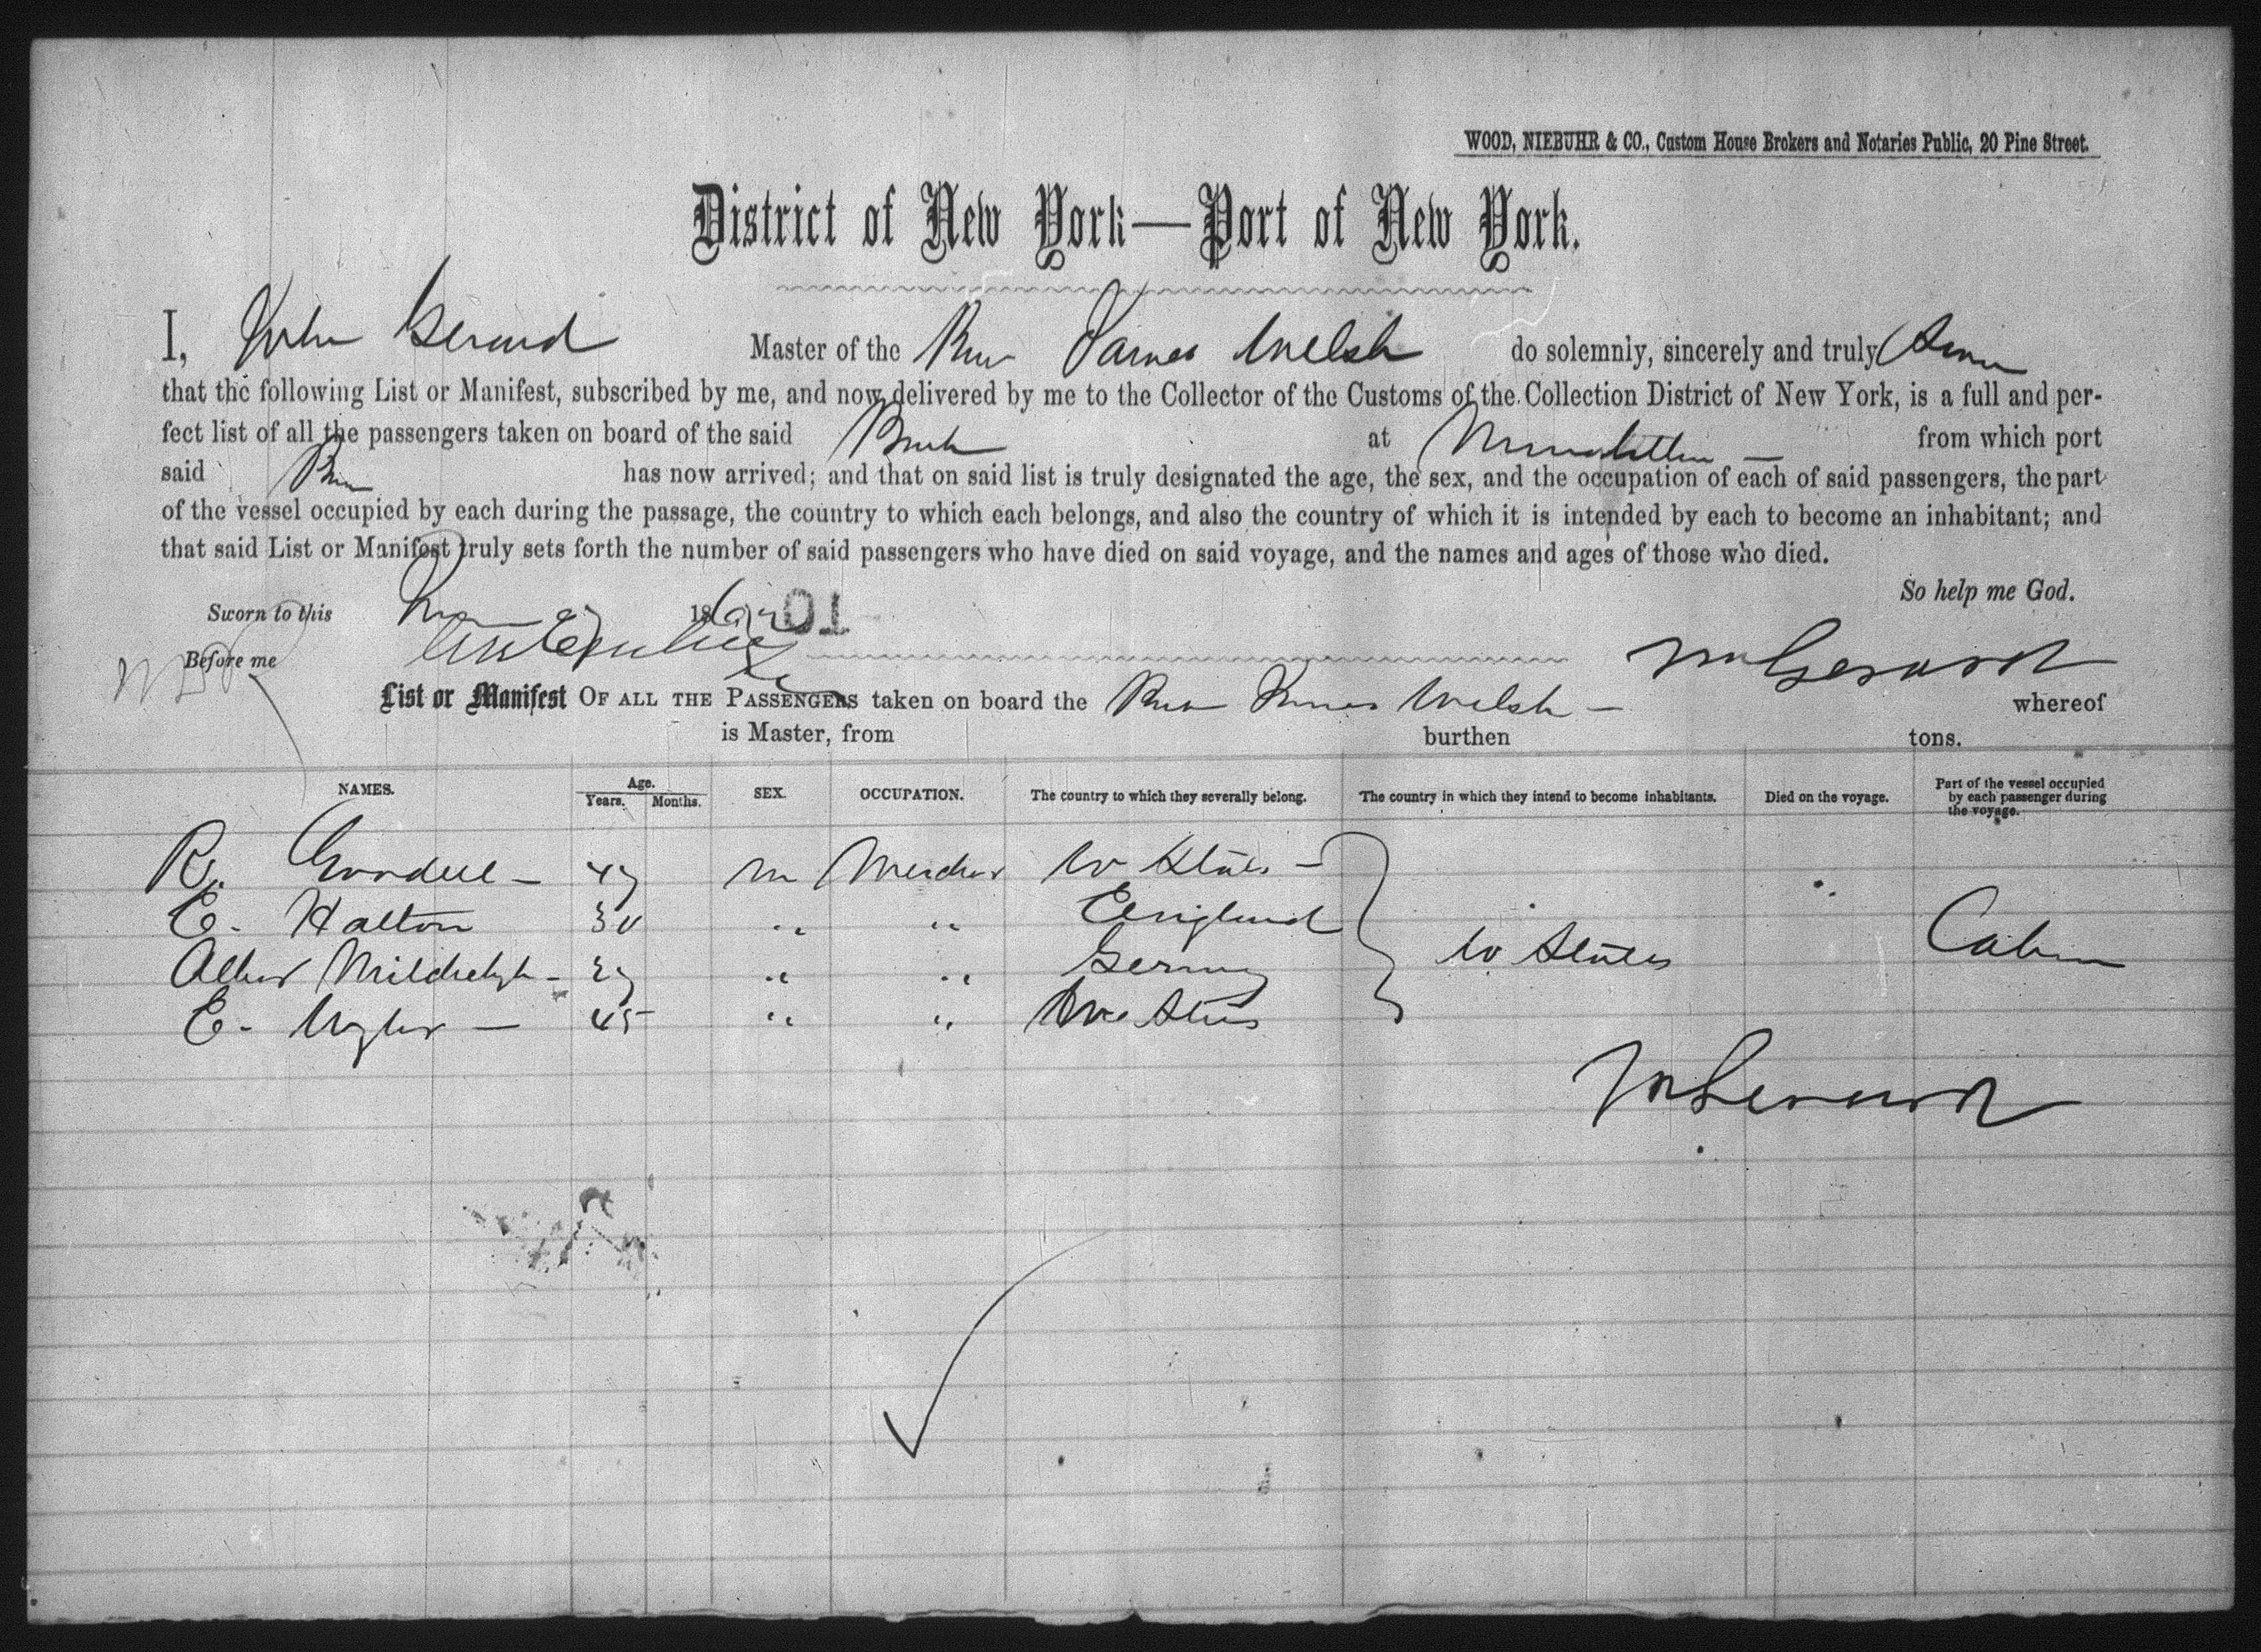 WOOD, NIEBUHR & CO., Custom House Brokers and Notaries Public, 20 Pine Street.
District of New York—Port of New York.
I, John Gerard Master of the James Welsh do solemnly, sincerely and truly
that the following List or Manifest, subscribed by me, and now delivered by me to the Collector of the Customs of the Collection District of New York, is a full and per-
fect list of all the passengers taken on board of the said at from which port
said has now arrived; and that on said list is truly designated the age, the sex, and the occupation of each of said passengers, the part
of the vessel occupied by each during the passage, the country to which each belongs, and also the country of which it is intended by each to become an inhabitant; and
that said List or Manifest truly sets forth the number of said passengers who have died on said voyage, and the names and ages of those who died.
So help me God.
Sworn to this 186 01
Before me
Gerard
List or Manifest OF ALL THE PASSENGERS taken on board the James Welsh — whereof
is Master, from burthen tons.
NAMES. Age. Years. Months. SEX. OCCUPATION. The country to which they severally belong. The country in which they intend to become inhabitants. Died on the voyage. Part of the vessel occupied by each passenger during the voyage.
R. — m States —
E. Halton 30 " " England
— " " Germy U States Cabin
E. — 45 " "
Gerard